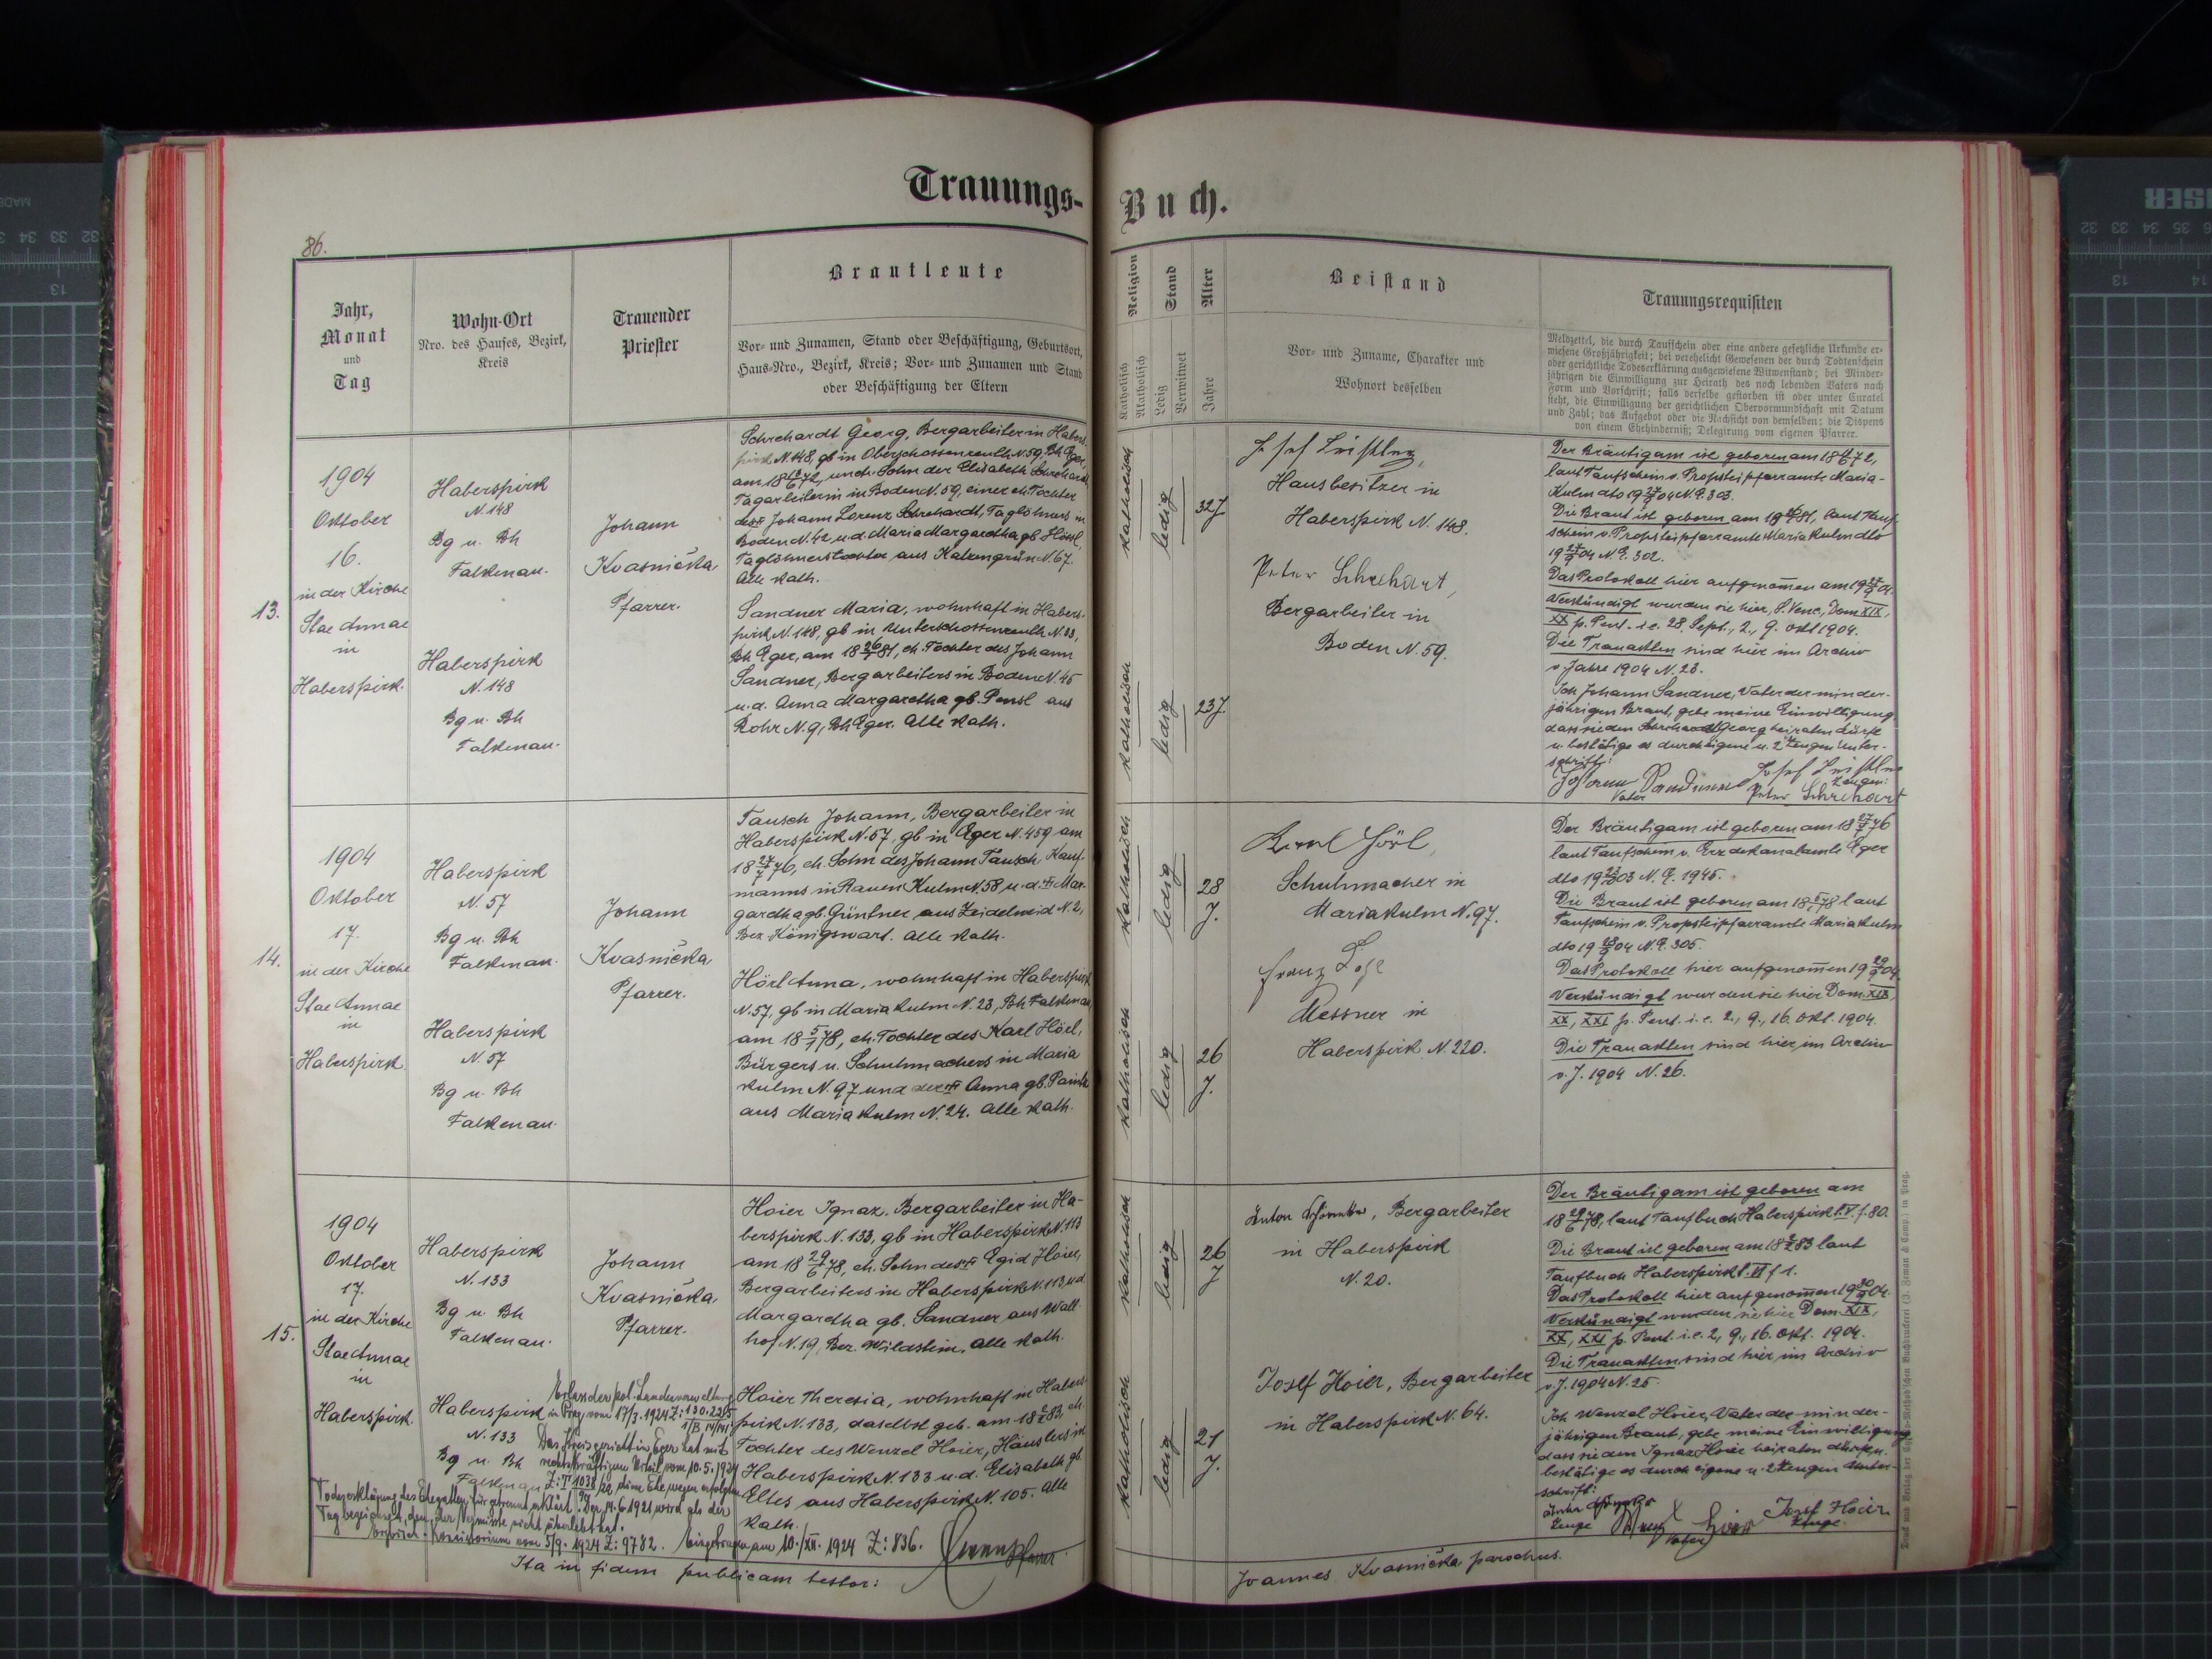 Trauungs-
Buch.
86.
Jahr,
Monat
und
Tag
Wohn-Ort
Nro. des Hauses, Bezirk,
Kreis
Trauender
Priester
Brautleute
Vor- und Zunamen, Stand oder Beschäftigung, Geburtsort,
Haus-Nro., Bezirk, Kreis; Vor- und Zunamen und Stand
oder Beschäftigung der Eltern
Religion
Katholisch
Akatholisch
Stand
Ledig
Verwitwet
Alter
Jahre
Beistand
Vor- und Zuname, Charakter und
Wohnort desselben
Trauungsrequisiten
Meldzettel, die durch Taufschein oder eine andere gesetzliche Urkunde er-
wiesene Großjährigkeit; bei verehelicht Gewesenen der durch Todtenschein
oder gerichtliche Todeserklärung ausgewiesene Witwenstand; bei Minder-
jährigen die Einwilligung zur Heirath des noch lebenden Vaters nach
Form und Vorschrift; falls derselbe gestorben ist oder unter Curatel
steht, die Einwilligung der gerichtlichen Obervormundschaft mit Datum
und Zahl; das Aufgebot oder die Nachsicht von demselben; die Dispens
von einem Ehehinderniß; Delegirung vom eigenen Pfarrer.
13.
1904
Oktober
16.
in der Kirche
Stae Annae
in
Haberspirk.
Haberspirk
N. 148
Bg u. Bh
Falkenau.
Haberspirk
N. 148
Bg u. Bh
Falkenau.
Johann
Kvasnička
Pfarrer.
Schrehardt Georg, Bergarbeiter in Habers-
pirk N. 148, gb in Oberschossenreuth N. 59, Bh Eger,
am 18 6 72, uneh. Sohn der Elisabeth Schrehardt,
Tagarbeiterin in Boden N. 59, einer eh. Tochter
des Johann Lorenz Schrehardt, Taglöhners in
Boden N. 42 u. d. Maria Margaretha gb. Hössl,
Taglöhnerstochter aus Katzengrün N. 67.
Alle kath.
Sandner Maria, wohnhaft in Habers-
pirk N. 148, gb in Unterschossenreuth N. 23,
Bh Eger, am 18 26 81, eh. Tochter des Johann
Sandner, Bergarbeiters in Boden N. 45
u. d. Anna Margaretha gb. Pensl aus
Rohr N. 9, Bh Eger. Alle kath.
katholisch
ledig
32 J.
katholisch
ledig
23 J.
Josef
Hausbesitzer in
Haberspirk N. 148.
Peter Schrehart,
Bergarbeiter in
Boden N. 59.
Der Bräutigam ist geboren am 18 6 72,
laut Taufschein v. Propsteipfarramte Maria-
Kulm dto 19 04 N. E. 303.
Die Braut ist geboren am 18 81, laut Tauf-
schein v. Propsteipfarramte Maria Kulm dto
19 04 N. E. 302.
Das Protokoll hier aufgenommen am 19 04.
Verkündigt wurden sie hier, S. Venc., Dom XIX,
XX p. Pent. i. e. 28. Sept., 2., 9. Okt 1904.
Die Trauakten sind hier im Archiv
v. Jahre 1904 N. 23.
Ich Johann Sandner, Vater der minder-
jährigen Braut, gebe meine Einwilligung,
dass sie den Schrehardt Georg heiraten dürfe
u. bestätige es durch eigene u. 2 Zeugen Unter-
schrift:
Johann Sandner Josef
Vater Zeugen:
Peter Schrehart
14.
1904
Oktober
17.
in der Kirche
Stae Annae
in
Haberspirk
Haberspirk
N. 57
Bg u. Bh
Falkenau.
Haberspirk
N. 57
Bg u. Bh
Falkenau.
Johann
Kvasnička,
Pfarrer.
Tausch Johann, Bergarbeiter in
Haberspirk N. 57, gb in Eger N. 459 am
18 27/7 76, eh. Sohn des Johann Tausch, Kauf-
manns in Rauen Kulm N. 58 u. d. Mar-
garetha gb. Güntner aus Zeidelweid N. 2,
Bez. Königswart. Alle kath.
Hörl Anna, wohnhaft in Haberspirk
N. 57, gb in Maria Kulm N. 23, Bh Falkenau,
am 18 5/1 78, eh. Tochter des Karl Hörl,
Bürgers u. Schuhmachers in Maria
Kulm N. 97 und der Anna gb.
aus Maria Kulm N. 24. Alle kath.
katholisch
ledig
28
J.
katholisch
ledig
26
J.
Karl Hörl,
Schuhmacher in
Maria Kulm N. 97.
Franz
Messner in
Haberspirk N. 220.
Der Bräutigam ist geboren am 18 27/7 76
laut Taufschein v. Erzdekanalamte Eger
dto 19 03 N. E. 1945.
Die Braut ist geboren am 18 5/1 78 laut
Taufschein v. Propsteipfarramte Maria Kulm
dto 19 04 N. E. 305.
Das Protokoll hier aufgenommen 19 29/9 04.
Verkündigt wurden sie hier Dom. XIX,
XX, XXI p. Pent. i. e. 2., 9., 16. Okt. 1904.
Die Trauakten sind hier im Archiv
v. J. 1904 N. 26.
15.
1904
Oktober
17.
in der Kirche
Stae Annae
in
Haberspirk.
Haberspirk
N. 133
Bg u. Bh
Falkenau.
Haberspirk
N. 133
Bg u. Bh
Falkenau
Johann
Kvasnička,
Pfarrer.
Hoier Ignaz, Bergarbeiter in Ha-
berspirk N. 133, gb in Haberspirk N. 113
am 18 29/6 78, eh. Sohn des Egid Hoier,
Bergarbeiters in Haberspirk N. 113 u. d.
Margaretha gb. Sandner aus Wall-
hof N. 19, Bez. Wildstein. Alle kath.
Hoier Theresia, wohnhaft in Habers-
pirk N. 133, daselbst geb. am 18 83, eh.
Tochter des Wenzel Hoier, Häuslers in
Haberspirk N. 133 u. d. Elisabeth gb.
Eltes aus Haberspirk N. 105. Alle
kath.
katholisch
ledig
26
J
katholisch
ledig
21
J.
Anton, Bergarbeiter
in Haberspirk
N. 20.
Josef Hoier, Bergarbeiter
in Haberspirk N. 64.
Der Bräutigam ist geboren am
18 29/6 78, laut Taufbuch Haberspirk t. V. f. 80.
Die Braut ist geboren am 18 83 laut
Taufbuch Haberspirk t. VI f 1.
Das Protokoll hier aufgenommen 19 30/9 04.
Verkündigt wurden sie hier Dom. XIX,
XX, XXI p. Pent. i. e. 2., 9., 16. Okt. 1904.
Die Trauakten sind hier im Archiv
v. J. 1904 N. 25.
Ich Wenzel Hoier, Vater der minder-
jährigen Braut, gebe meine Einwilligung,
dass sie den Ignaz Hoier heiraten dürfe u.
bestätige es durch eigene u. 2 Zeugen Unter-
schrift:
Josef Hoier
Zeuge Zeuge
Vater
Erlass der pol. Landesverwaltung
in Prag vom 17/3. 1924 Z: 130.225
Das Kreisgericht in Eger hat mit
rechtskräftigem Urteil vom 10. 5. 1924
diese Ehe wegen erfolgter
Todeserklärung des Ehegatten für getrennt erklärt. Der 14. 6. 1921 wird als der
Tag bezeichnet, den der Vermisste nicht überlebt hat.
Konsistorium vom 5/9. 1924 Z: 9782. Eingetragen am 10./XII. 1924 Z: 836.
Pfarrer
Ita in fidem publicam testor:
Joannes Kvasnička parochus.